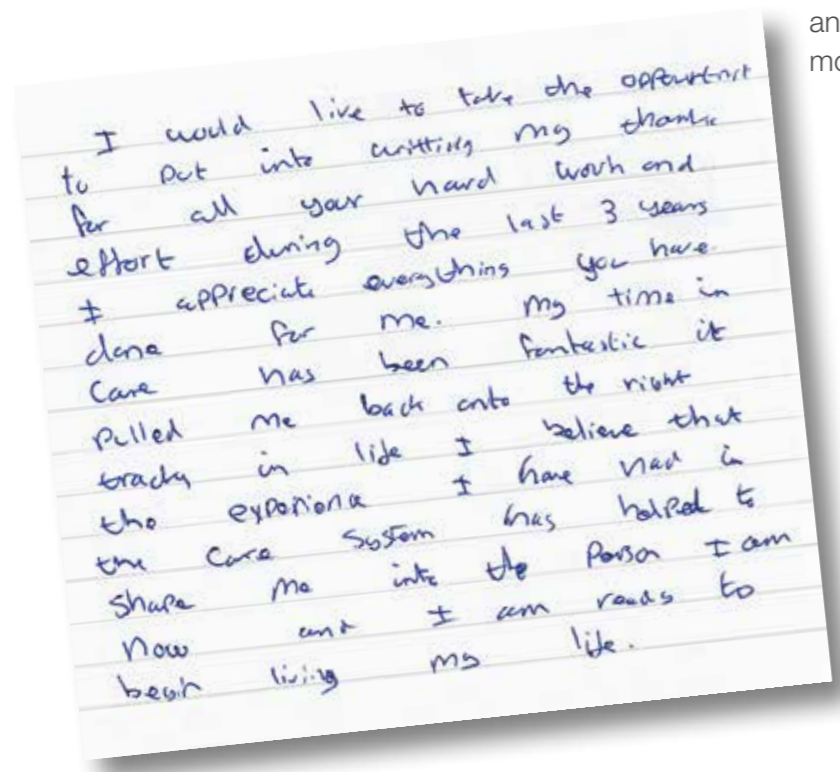 I would like to take the oppourtunit
to put into writting my thanks
for all your hard work and
effort during the last 3 years
I appreciate everything you have
done for me. My time in
Care has been fantastic it
Pulled me back onto the right
track in life I believe that
the experience I have had in
the Care System has helped to
Shape me into the Person I am
Now and I am ready to
begin living my life.
an
mo